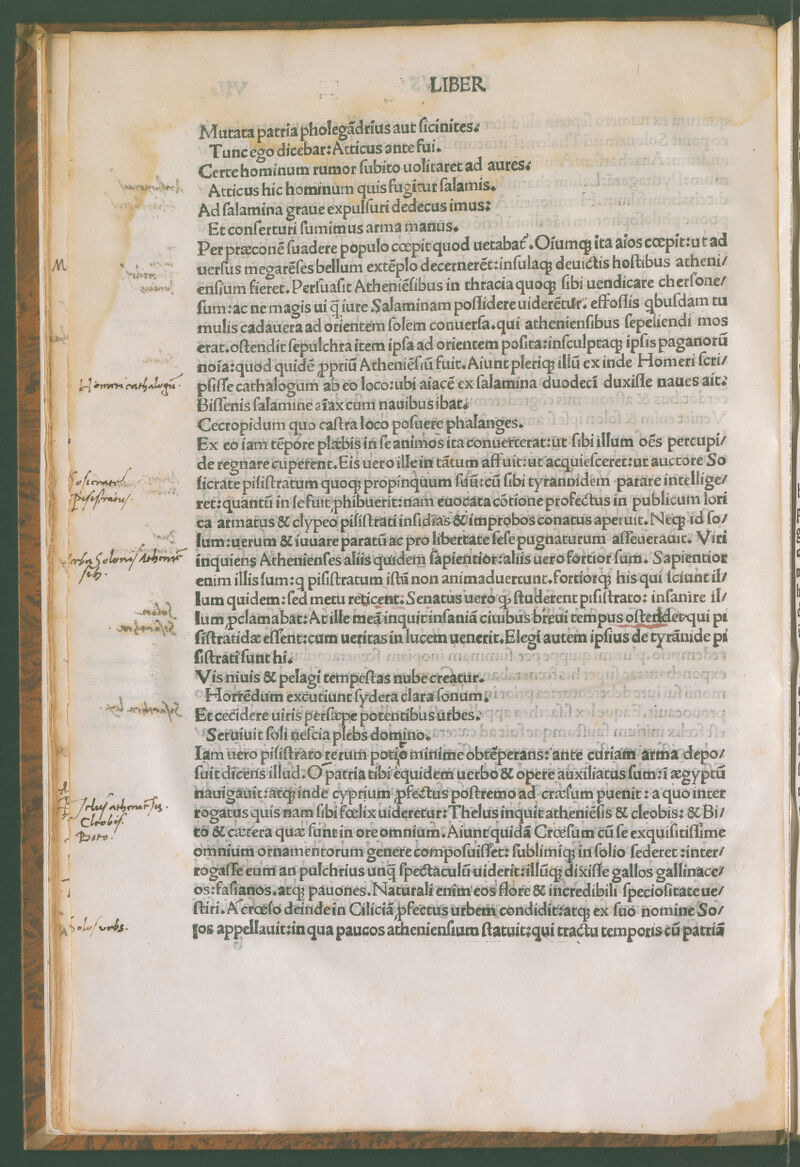 LIBER
Mutata patria pholegādrius aut ſicinites:
Tunc ego dicebar: Atticus ante fui.
Certe hominum rumor ſubito uolitaret ad aures:
Atticus hic hominum quis fugitur ſalamis.
Ad ſalamina graue expulſuri dedecus imus:
Et conſerturi ſumimus arma manus.
Per præconē ſuadere populo cœpit quod uetabat̄. Oīumq; ita aīos cœpit: ut ad
uerſus megarēſes bellum extēplo decernerēt: inſulaq; deuictis hoſtibus atheni/
enſium fieret. Perſuaſit Atheniēſibus in thracia quoq; ſibi uendicare cherſone/
ſum: ac ne magis ui q̄ iure Salaminam poſſidere uiderētur: effoſſis qbuſdam tu
mulis cadauera ad orientem ſolem conuerſa. qui athenienſibus ſepeliendi mos
erat. oſtendit ſepulchra item ipſa ad orientem poſita: inſculptaq; ipſis paganorū
noīa: quod quidē ꝓpriū Atheniēſiū fuit. Aiunt pleriq; illū ex inde Homeri ſcri/
Homeri cathalogū.
pſiſſe cathalogum ab eo loco: ubi aiacē ex ſalamina duodecī duxiſſe naues ait:
Biſſenis ſalamine aīax cum nauibus ibat:
Cecropidum quo caſtra loco poſuere phalanges.
Ex eo iam tēpore plæbis in ſe animos ita conuerterat: ut ſibi illum oēs percupi/
de regnare cuperent. Eis uero ille in tātum affuit: ut acquieſceret: ut auctore So
ſicrate piſiſtratum quoq; propinquum ſuū: cū ſibi tyrannidem parare intellige/
ret: quantū in ſe fuit ꝓhibuerit: nam euocata cōtione profectus in publicum lori
ca armatus & clypeo piſiſtrati inſidias & improbos conatus aperuit. Neq; id ſo/
lum: uerum & iuuare paratū ac pro libertate ſeſe pugnaturum aſſeuerauit. Viri
inquiens Athenienſes aliis quidem ſapientior: aliis uero fortior ſum. Sapientior
enim illis ſum: q piſiſtratum iſtū non animaduertunt. fortiorq; his qui ſciunt il/
lum quidem: ſed metu reticent: Senatus uero q; ſtuderent piſiſtrato: inſanire il/
lum ꝓclamabat: At ille meā inquit inſaniā ciuibus breui tempus oſtendet qui pi
ſiſtratidæ eſſent: cum ueritas in lucem uenerit. Elegi autem ipſius de tyrānide pi
ſiſtrati ſunt hi.
Vis niuis & pelagi tempeſtas nube creatur.
Horrēdum excutiunt ſydera clara ſonum:
Et cecidere uiris perſæpe potentibus urbes:
Seruiuit ſoli neſcia plebs domino.
Iam uero piſiſtrato rerum potīo minime obtēperans: ante curiam arma depo/
ſuit dicens illud. O patria tibi equidem uerbo & opere auxiliatus ſum: ī ægyptū
nauigauit: atq; inde cyprium ꝓfectus poſtremo ad cræſum puenit: a quo inter
rogatus quis nam ſibi fœlix uideretur: Thelus inquit atheniēſis & cleobis: & Bi/
Cleobis.
to & cætera quæ ſunt in ore omnium. Aiunt quidā Crœſum cū ſe exquiſitiſſime
omnium ornamentorum genere compoſuiſſet: ſublimiq; in ſolio ſederet: inter/
rogaſſe eum an pulchrius unq̄ ſpectaculū uiderit: illūq; dixiſſe gallos gallinace/
os: faſianos. atq; pauones. Naturali enim eos flore & incredibili ſpecioſitate ue/
ſtiri. A crœſo deinde in Ciliciā ꝓfectus urbem condidit: atq; ex ſuo nomine So/
Solos urbs.
los appellauit: in qua paucos athenienſium ſtatuit: qui tractu temporis cū patriā